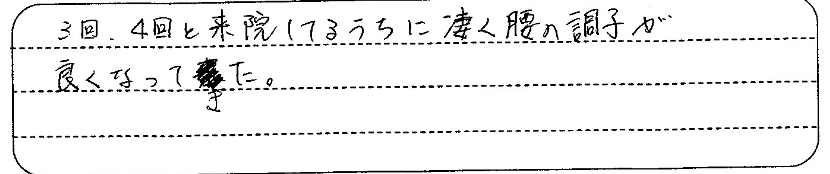 3回、4回と来院してるうちに凄く腰の調子が
良くなってきた。